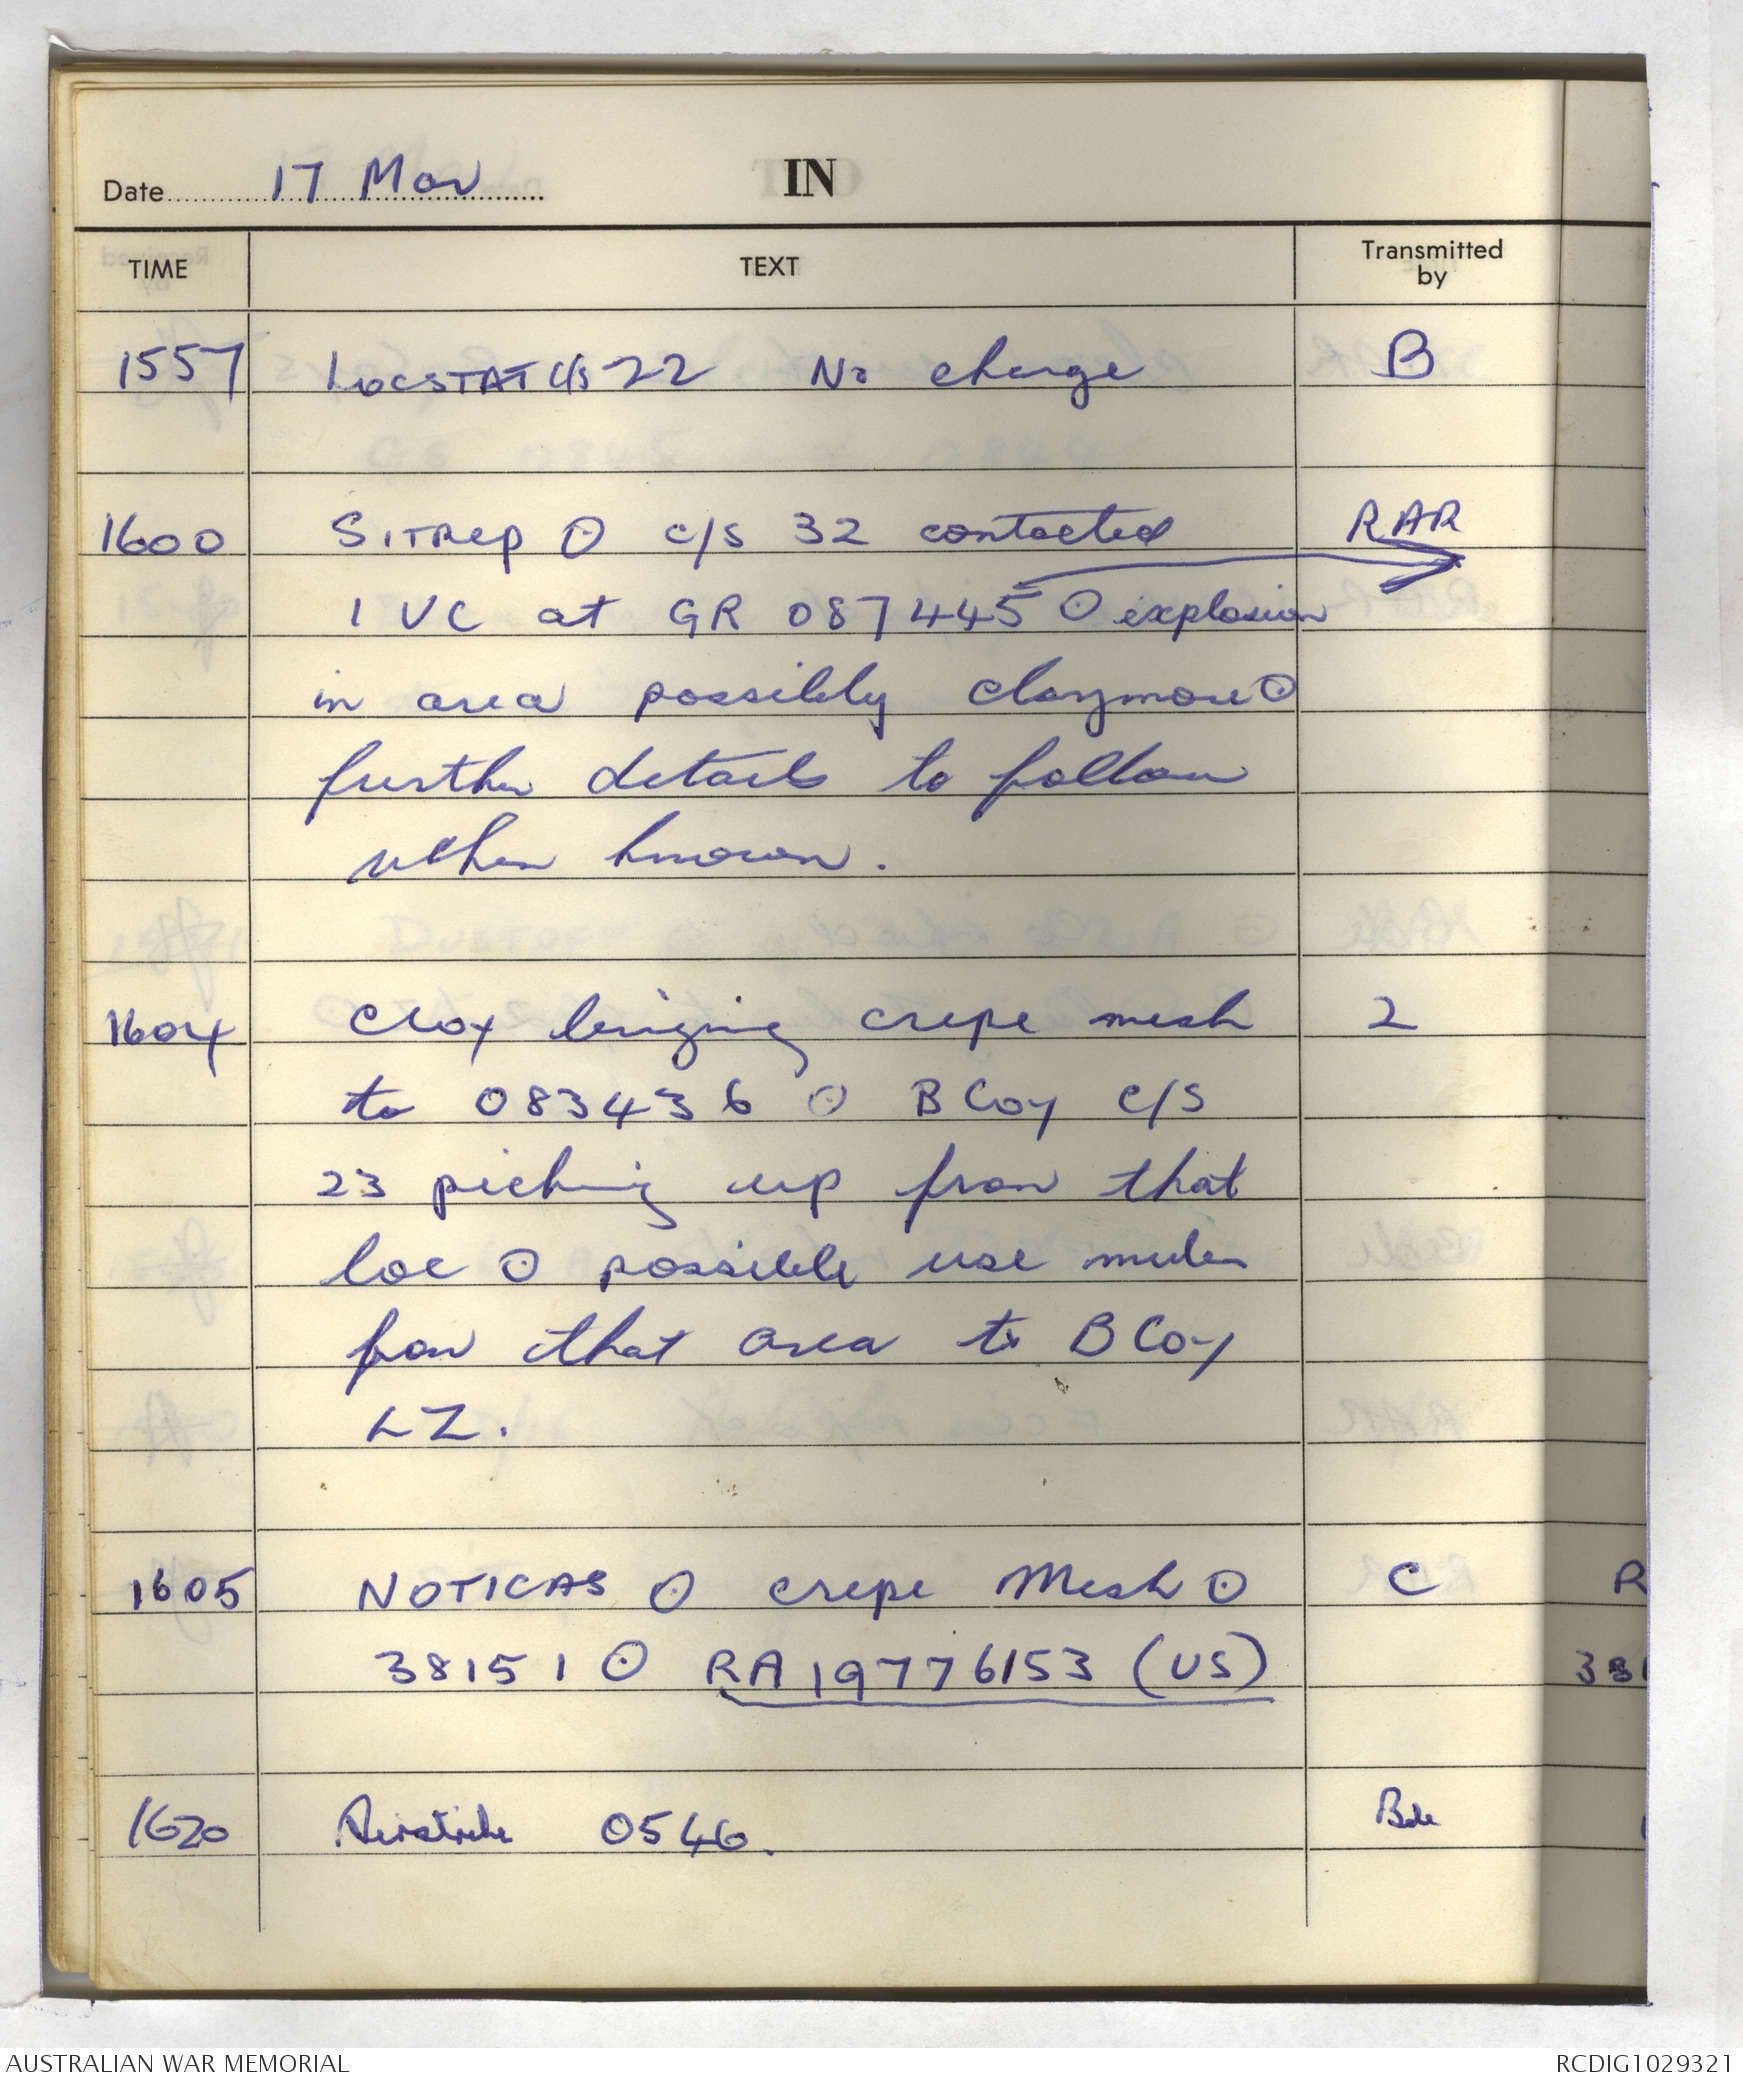 Date 17 Mar IN
TIME TEXT Transmitted by
1557 LOCSTAT C/S 22 No change B
1600 SITREP ⊙ C/S 32 contacted RAR
1 VC at GR 087445 ⊙ explosion
in area possibly claymore ⊙
further details to follow
when known.
1604 bringing crepe mesh 2
to 083436 ⊙ B Coy C/S
23 picking up from that
loc ⊙ possible use mules
from that area to B Coy
LZ.
1605 NOTICAS ⊙ crepe Mesh ⊙ C R
38151 ⊙ RA19776153 (US) 381
1620 Airstrike 0546. Bde
AUSTRALIAN WAR MEMORIAL RCDIG1029321